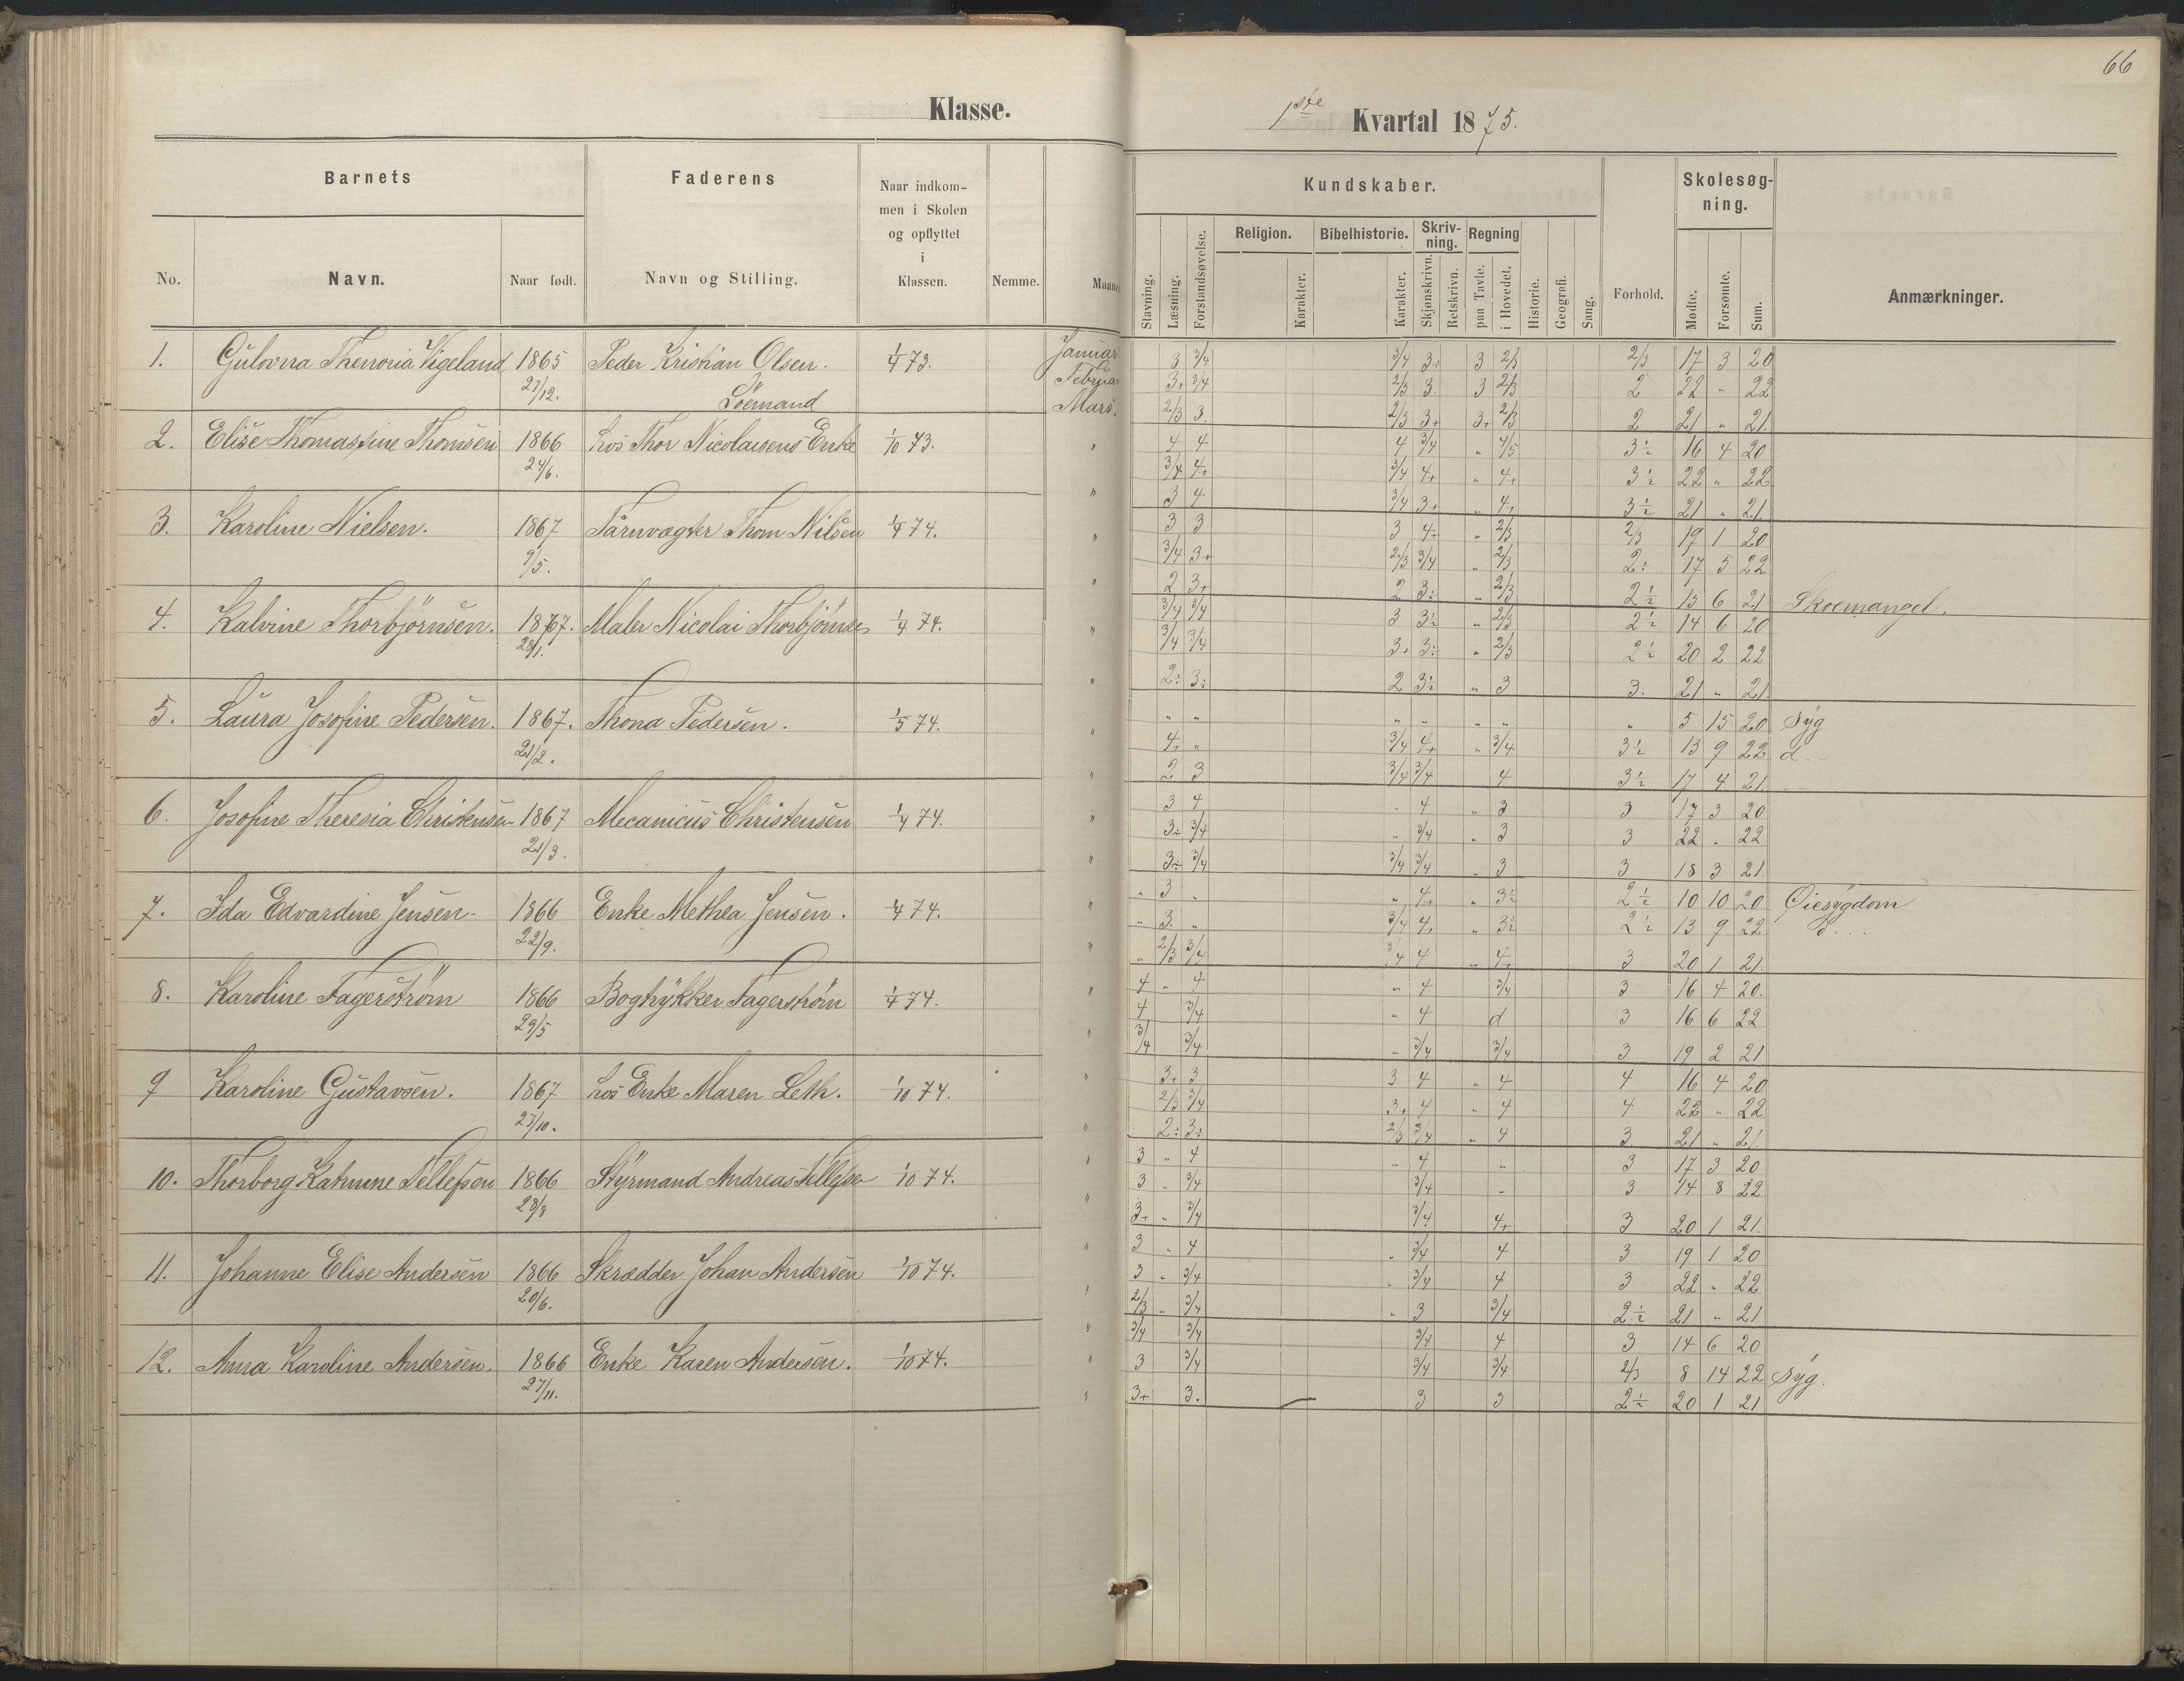 66
Klasse.
1ste Kvartal 1875.
Barnets
Faderens
Naar indkom-
men i Skolen
og opflyttet
i
Klassen.
No.
Navn.
Naar født.
Navn og Stilling.
Nemme.
Maane
Kundskaber.
Stavning.
Læsning.
Forstandsøvelse.
Religion.
Karakter.
Bibelhistorie.
Karakter.
Skriv-
ning.
Skjønskrivn.
Retskrivn.
Regning
paa Tavle.
i Hovedet.
Historie.
Geografi.
Sang.
Forhold.
Skolesøg-
ning.
Mødte.
Forsømte.
Sum.
Anmærkninger.
1. Gulovna Thenoria Vigeland 1865 Peder Kristian Olsen. 1/4 73. Januar 3 3/4 3/4 3+ 3 2/3 2/3 17 3 20
27/12. Februa 3+ 3/4 2/3 3 3 2/3 2 22 " 22
Söemand Mars. 2/3 3. 2/3 3+ 3+ 2/3 2 21 " 21.
2. Elise Thomassine Thomsen 1866 hos Thor Nicolaisens Enke 1/10 73. " 4 4 4 3/4 " 4/5 3÷ 16 4 20
24/6. 3/4 4+ 3/4 4+ " 4+ 3÷ 22 " 22
" 3 4 3/4 3+ " 4+ 3÷ 21 " 21
3. Karoline Nielsen. 1867 Tårnvægter Thom Nilsen 1/4 74. " 3 3 3 4+ " 2/3 2/3 19 1 20
9/5. 3/4 3+ 2/3 3/4 " 2/3 2÷ 17 5 22
" 2 3+ 2 3÷ " 2/3 2÷ 15 6 21 Skoemangel.
4. Kalvine Thorbjörnsen. 1867. Maler Nicolai Thorbjörnse 1/4 74. " 3/4 3/4 3 3÷ " 2/3 2÷ 14 6 20
28/1. 3/4 3/4 3+ 3÷ " 2/3 2÷ 20 2 22
" 2÷ 3÷ 2 3÷ " 3 3. 21 " 21
5. Laura Josofine Pedersen. 1867. Thona Pedersen. 1/5 74. " " " " " " " " 5 15 20 Syg
21/2. 4+ " 3/4 4+ " 3/4 3÷ 13 9 22 d.
" 2 3 3/4 3/4 4 3÷ 17 4 21.
6. Josofine Theresia Christensen 1867 Mecanicus Christensen 1/4 74. " 3 4 " 4 " 3 3 17 3 20
21/3. 3÷ 3/4 " 3/4 " 3 3 22 " 22
" 3÷ 3/4 3/4 3/4 " 3 3 18 3 21.
7. Ida Edvardine Jensen 1866 Enke Methea Jensen. 1/4 74. " " 3 " " 4+ " 3÷ 2÷ 10 10 20 Øiesygdom
22/9. " 3. " 3/4 4+ " 3÷ 2÷ 13 9 22 d...
" " 2/3 3/4 3/4 4 " 4+ 3 20 1 21.
8. Karoline Fagerström 1866 Bogtrykker Fagerström 1/4 74. " 4 " 4 " 4 3/4 3 16 4 20.
29/5 4 3/4 " 4 d 3 16 6 22
" 3/4 3/4 " 3/4 3/4 3 19 2 21
9 Karoline Gustavsen. 1867 hos Enke Maren Leth. 1/10 74. " 3+ 3 3 4 " 4 4 16 4 20
27/10. 2/3 3/4 3+ 4 " 4 4 22 " 22
" 2÷ 3÷ 2/3 3/4 " 4 3 21 " 21
10. Thorborg Katrine Tellefsen 1866 Styrmand Andreas Tellefse 1/10 74. " 3 " 4 " 4 " 3 17 3 20
28/8 3 " 3/4 3/4 " 3 14 8 22
" 3+ " 3/4 3/4 4+ 3 20 1 21.
11. Johanne Elise Andersen 1866 Skrædder Johan Andersen 1/10 74. " 3 " 4 " 3/4 4 3 19 1 20
20/6. 3 " 3/4 " 3/4 4 3 22 " 22
" 2/3 " 3/4 " 3 3/4 2÷ 21 " 21
12. Anna Karoline Andersen. 1866 Enke Karen Andersen. 1/10 74. " 3/4 3/4 3/4 4 3 14 6 20
27/11. " 3 3/4 3/4 3/4 2/3 8 14 22 Syg.
" 3+ 3. 3 3 2÷ 20 1 21